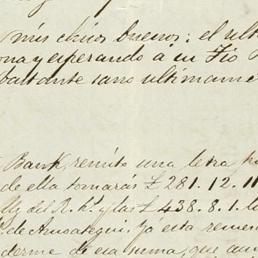 mis chicos buenos: el ult
ona y esperando á su Tio
bastante sano ultimame
Bank, remito una letra
de ella tomarás £ 281.12.11
del R. h.º y las £ 438.8.1.
de Amosategui. Ya esta
de esa suma, que